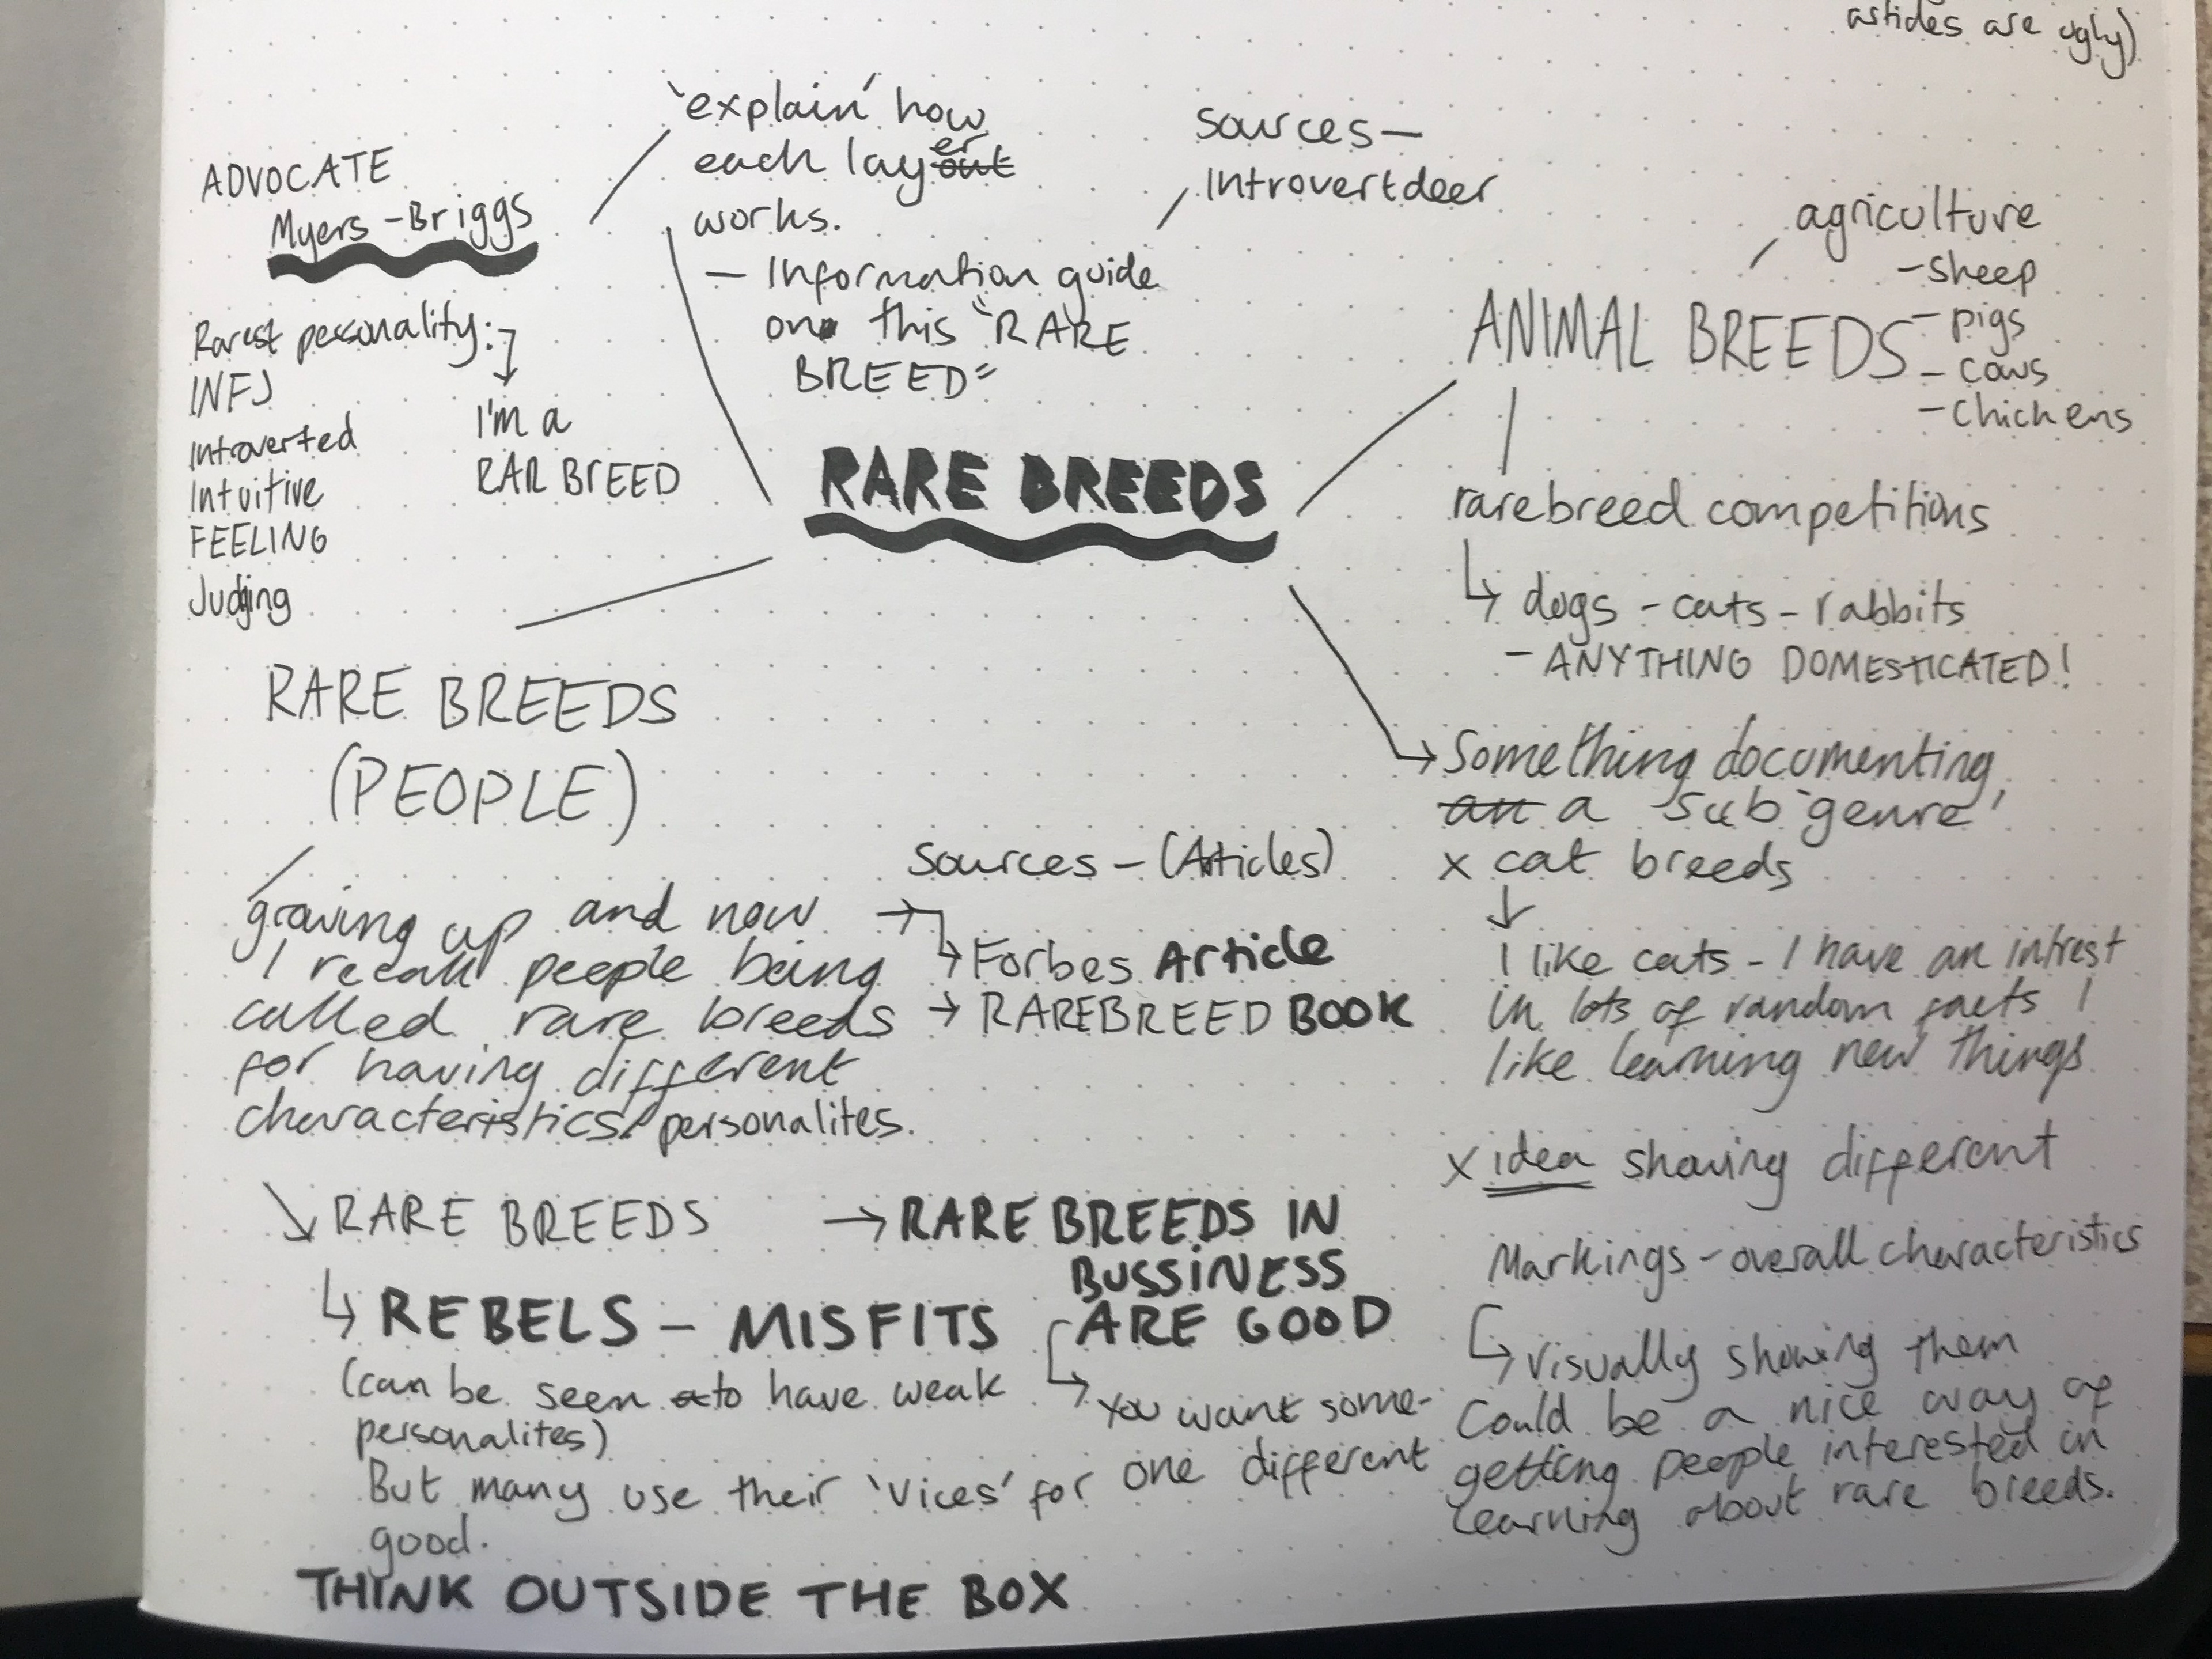 articles are ugly)
'explain' how
each layer out
works.
- Information guide
on this "RARE
BREED"
sources-
Introvertdeer
ADVOCATE
Myers-Briggs
Rarest personality:
INFJ
Introverted
Intuitive
FEELING
Judging
I'm a
RAR BREED
agriculture
-sheep
- pigs
- cows
- chickens
ANIMAL BREEDS
RARE BREEDS
rarebreed competitions
dogs - cats - rabbits
- ANYTHING DOMESTICATED!
RARE BREEDS
(PEOPLE)
Something documenting
an a 'sub genre'
x cat breeds
I like cats - I have an intrest
in lots of random facts I
like learning new things
Sources - (Articles)
Forbes Article
RAREBREED BOOK
growing up and now
I recall people being
called rare breeds
for having different
characteristics/personalites.
x idea showing different
Markings - overall characteristics
visually showing them
Could be a nice way of
getting people interested in
learning about rare breeds.
RARE BREEDS
RARE BREEDS IN
BUSSINESS
ARE GOOD
You want some-
one different
REBELS - MISFITS
(can be seen to have weak
personalites)
But many use their 'vices' for
good.
THINK OUTSIDE THE BOX